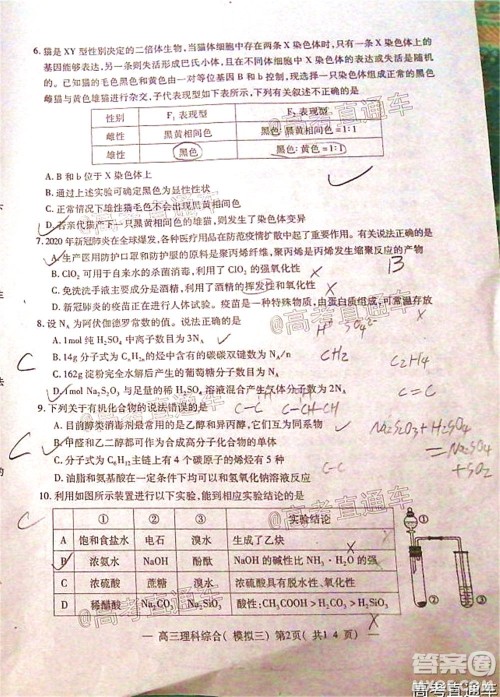 6. 猫是 XY 型性别决定的二倍体生物，当猫体细胞中存在两条 X 染色体时，只有一条 X 染色体上的
基因能够表达，另一条则失活形成巴氏小体，且在不同体细胞中 X 染色体的表达或失活是随机
的。已知猫的毛色黑色和黄色由一对等位基因 B 和 b 控制，现选择一只染色体组成正常的黑色
雌猫与黄色雄猫进行杂交，子代表现型如下表所示，下列有关叙述不正确的是
性别 F₁ 表现型 F₂ 表现型
雌性 黑黄相间色 黑色：黑黄相间色＝1：1
雄性 黑色 黑色：黄色＝1：1
A. B 和 b 位于 X 染色体上
B. 通过上述实验可确定黑色为显性性状
C. 正常情况下雄性猫毛色不会出现黑黄相间色
D. 若亲代猫产下一只黑黄相间色的雄猫，则发生了染色体变异
7. 2020 年新冠肺炎在全球爆发，各种医疗用品在防范疫情扩散中起了重要作用。有关说法正确的是
A. 生产医用防护口罩和防护服的原料是聚丙烯材料，聚丙烯是丙烯发生缩聚反应的产物
B. ClO₂ 可用于自来水的杀菌消毒，利用了 ClO₂ 的强氧化性
C. 免洗洗手液主要成分是酒精，利用了酒精的氧化性
D. 新冠肺炎的疫苗正在进行人体试验。疫苗是一种特殊物质，由蛋白质组成，可常温存放
B
8. 设 Nᴀ 为阿伏伽德罗常数的值。说法正确的是
H⁺ SO₄²⁻
A. 1mol 纯 H₂SO₄ 中离子数目为 3Nᴀ
B. 14g 分子式为 CₙH₂ₙ 的烃中含有的碳碳双键数为 Nᴀ/n
CH₂
C₂H₄
C. 162g 淀粉完全水解后产生的葡萄糖分子数目为 Nᴀ
D. 1mol Na₂S₂O₃ 与足量的稀 H₂SO₄ 溶液混合产生气体分子数为 2Nᴀ
C=C
C
9. 下列关于有机化合物的说法错误的是
A. 目前醇类消毒剂最常用的是乙醇和异丙醇，它们互为同系物
Na₂S₂O₃+H₂SO₄
B. 甲醛和乙二醇都可作为合成高分子化合物的单体
=Na₂SO₄
C. 分子式为 C₆H₁₂ 主链上有 4 个碳原子的烯烃有 5 种
+SO₂
D. 油脂和氨基酸在一定条件下均可以和氢氧化钠溶液反应
C-C
C
10. 利用如图所示装置进行以下实验，能到相应实验结论的是
① ② ③ 实验结论
A 饱和食盐水 电石 溴水 生成了乙炔
B 浓氨水 NaOH 酚酞 NaOH 的碱性比 NH₃·H₂O 的强
C 浓硫酸 蔗糖 溴水 浓硫酸具有脱水性、氧化性
D 稀醋酸 Na₂CO₃ Na₂SiO₃ 酸性：CH₃COOH＞H₂CO₃＞H₂SiO₃
①
②
③
C
— 高三理科综合( 模拟三) 第2页( 共14 页) —
@高考直通车
@高考直通车
@高考直通车
@高考直通车
答案圈
高考直通车